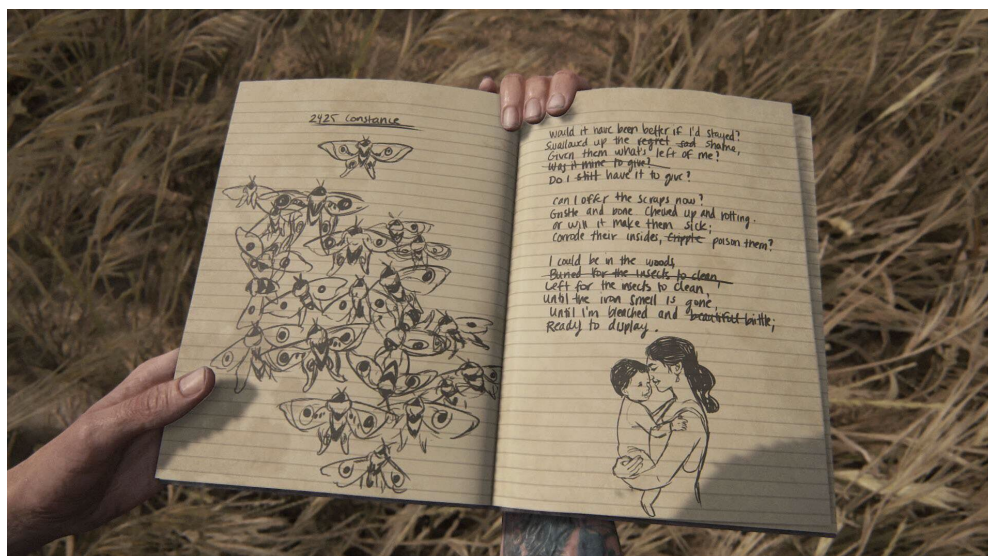 2425 Constance
Would it have been better if I'd stayed?
Swallowed up the regret and shame,
Given them what's left of me?
Was it mine to give?
Do I still have it to give?
Can I offer the scraps now?
Gristle and bone chewed up and rotting.
Or will it make them sick;
Corrode their insides, cripple poison them?
I could be in the woods
Buried for the insects to clean,
Left for the insects to clean,
Until the iron smell is gone,
Until I'm bleached and beautiful brittle;
Ready to display.